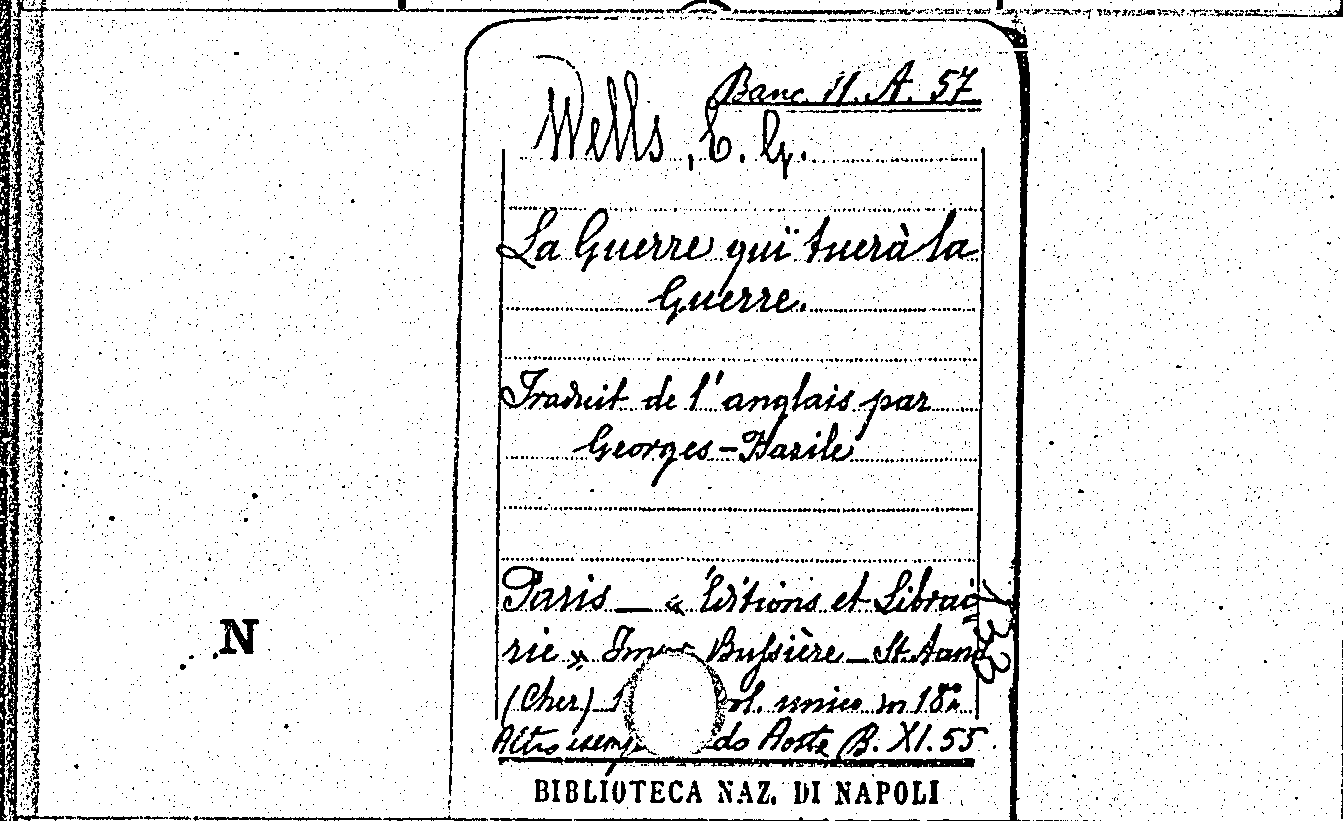 Banc. II. A. 57
Wells, E. G.
La Guerre qui tuerà la
Guerre.
Traduit de l'anglais par
Georges-Bazile
Paris — « Éditions et Librai
rie » Bussière — St. Amand
(Cher) vol. unico in 18º
Altro do Aosta B. XI. 55
N
BIBLIOTECA NAZ. DI NAPOLI